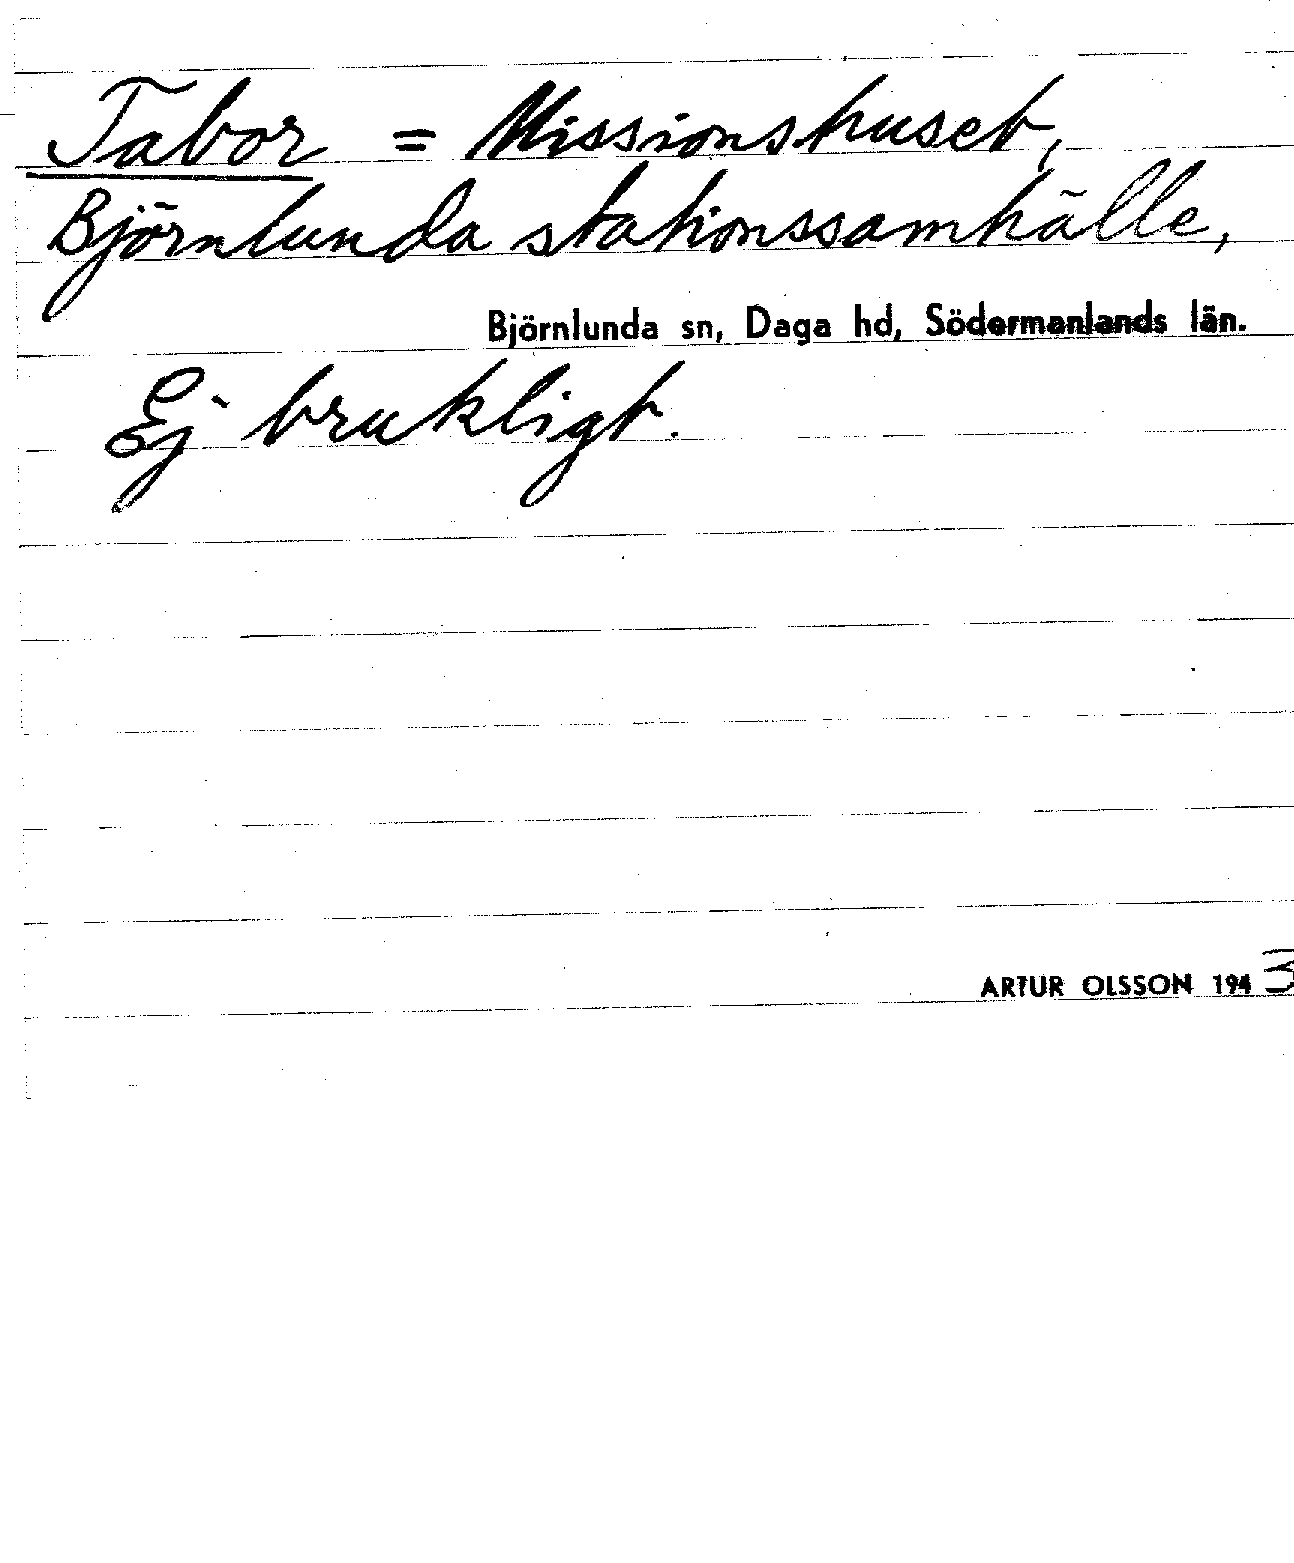 Tabor = Missionshuset,
Björnlunda stationssamhälle,
Björnlunda sn, Daga hd, Södermanlands län.
Ej brukligt.
ARTUR OLSSON 1943